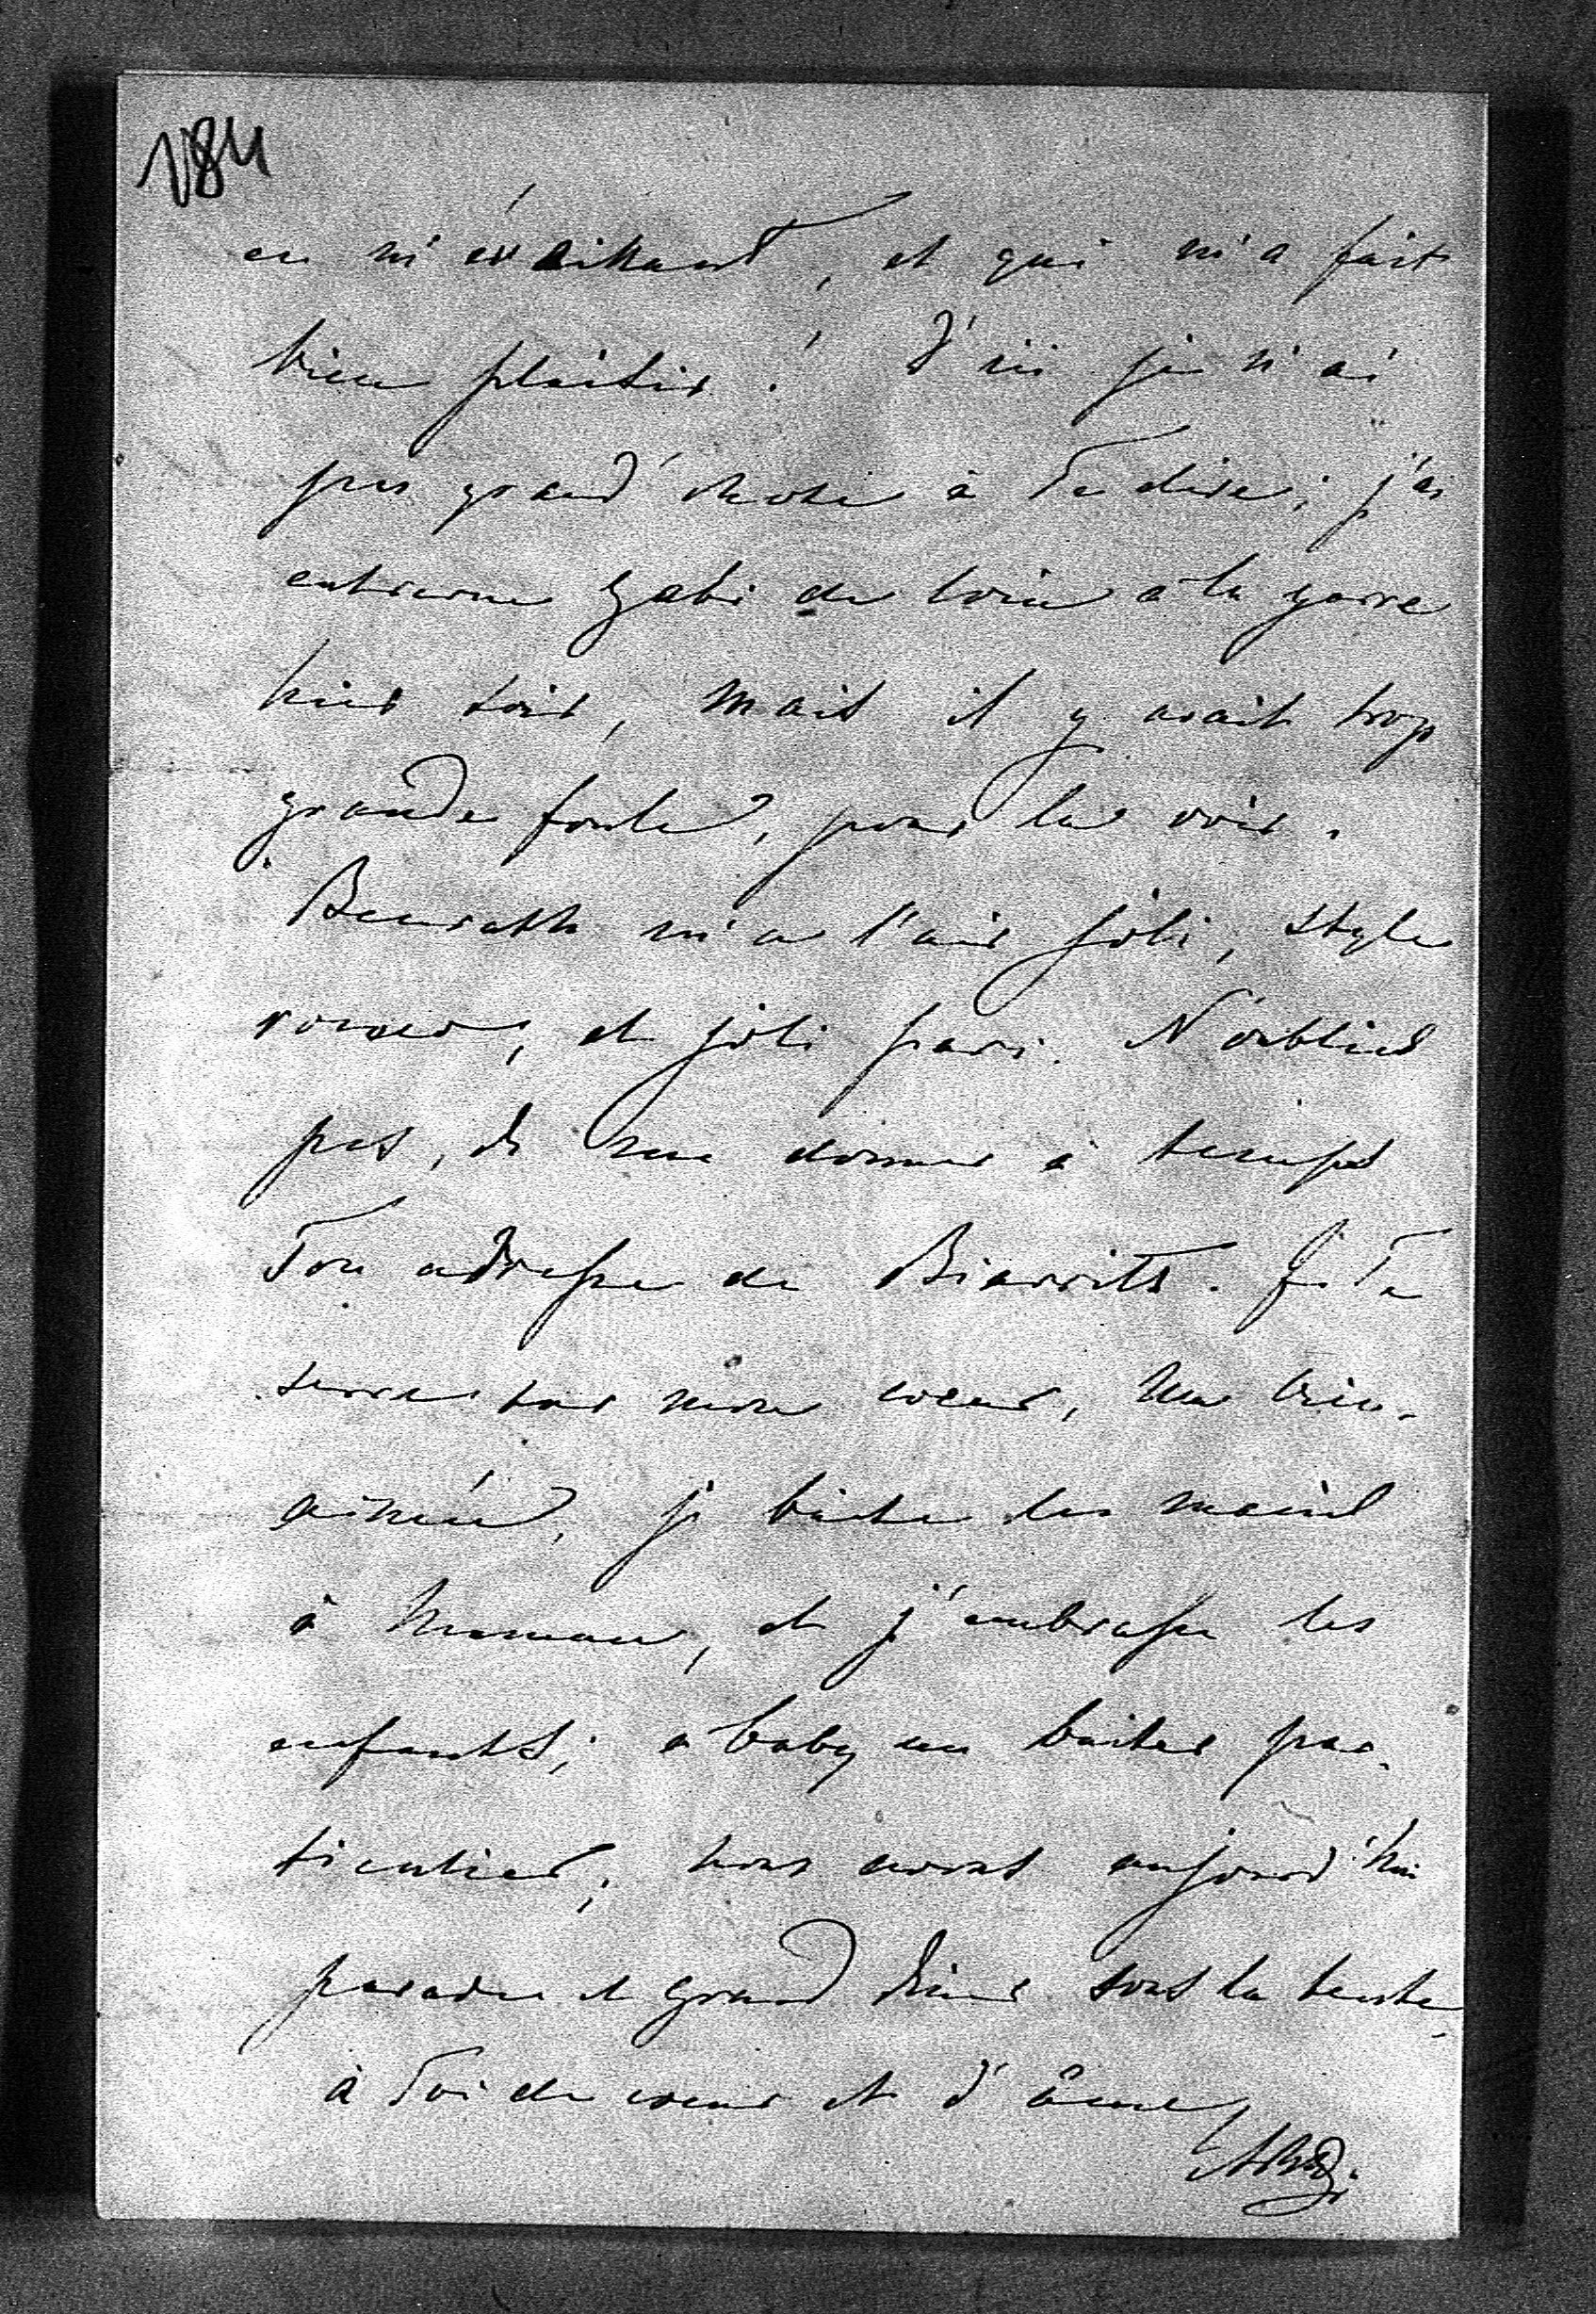 184
en m'éveillant, et qui m'a fait
bien plaisir! D'ici je n'ai
pas grand' chose à Te dire; j'ai
entrevue Gabi de loin à la garre
hier soir, mais il y avait trop
grande foule, pour la voir.
Benrath m'a l'air joli, style
rococo, et joli parc. N'oublies
pas, de me donner à temps
Ton adresse de Biarrits. Je Te
serre sur mon coeur, ma bien-
aimée, je baise les mains
à Maman, et j'embrasse les
enfants; à baby un baiser par-
ticulier; nous avons aujourd'hui
parade et grand diner sous la tente.
à Toi de coeur et d'âme